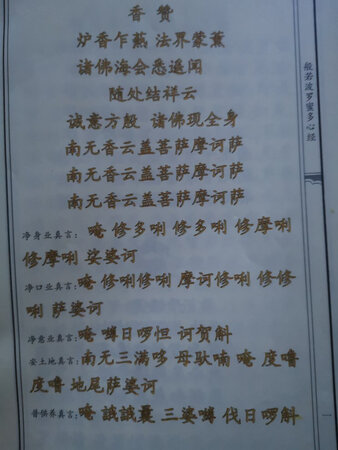 香赞
炉香乍爇 法界蒙薰
诸佛海会悉遥闻
随处结祥云
诚意方殷 诸佛现全身
南无香云盖菩萨摩诃萨
南无香云盖菩萨摩诃萨
南无香云盖菩萨摩诃萨
净身业真言：唵 修多唎 修多唎 修摩唎
修摩唎 娑婆诃
净口业真言：唵 修唎修唎 摩诃修唎 修修
唎 萨婆诃
净意业真言：唵 嚩日啰怛 诃贺斛
安土地真言：南无三满哆 母驮喃 唵 度噜
度噜 地尾萨婆诃
普供养真言：唵 誐誐曩 三婆嚩 伐日啰斛
般若波罗蜜多心经
一